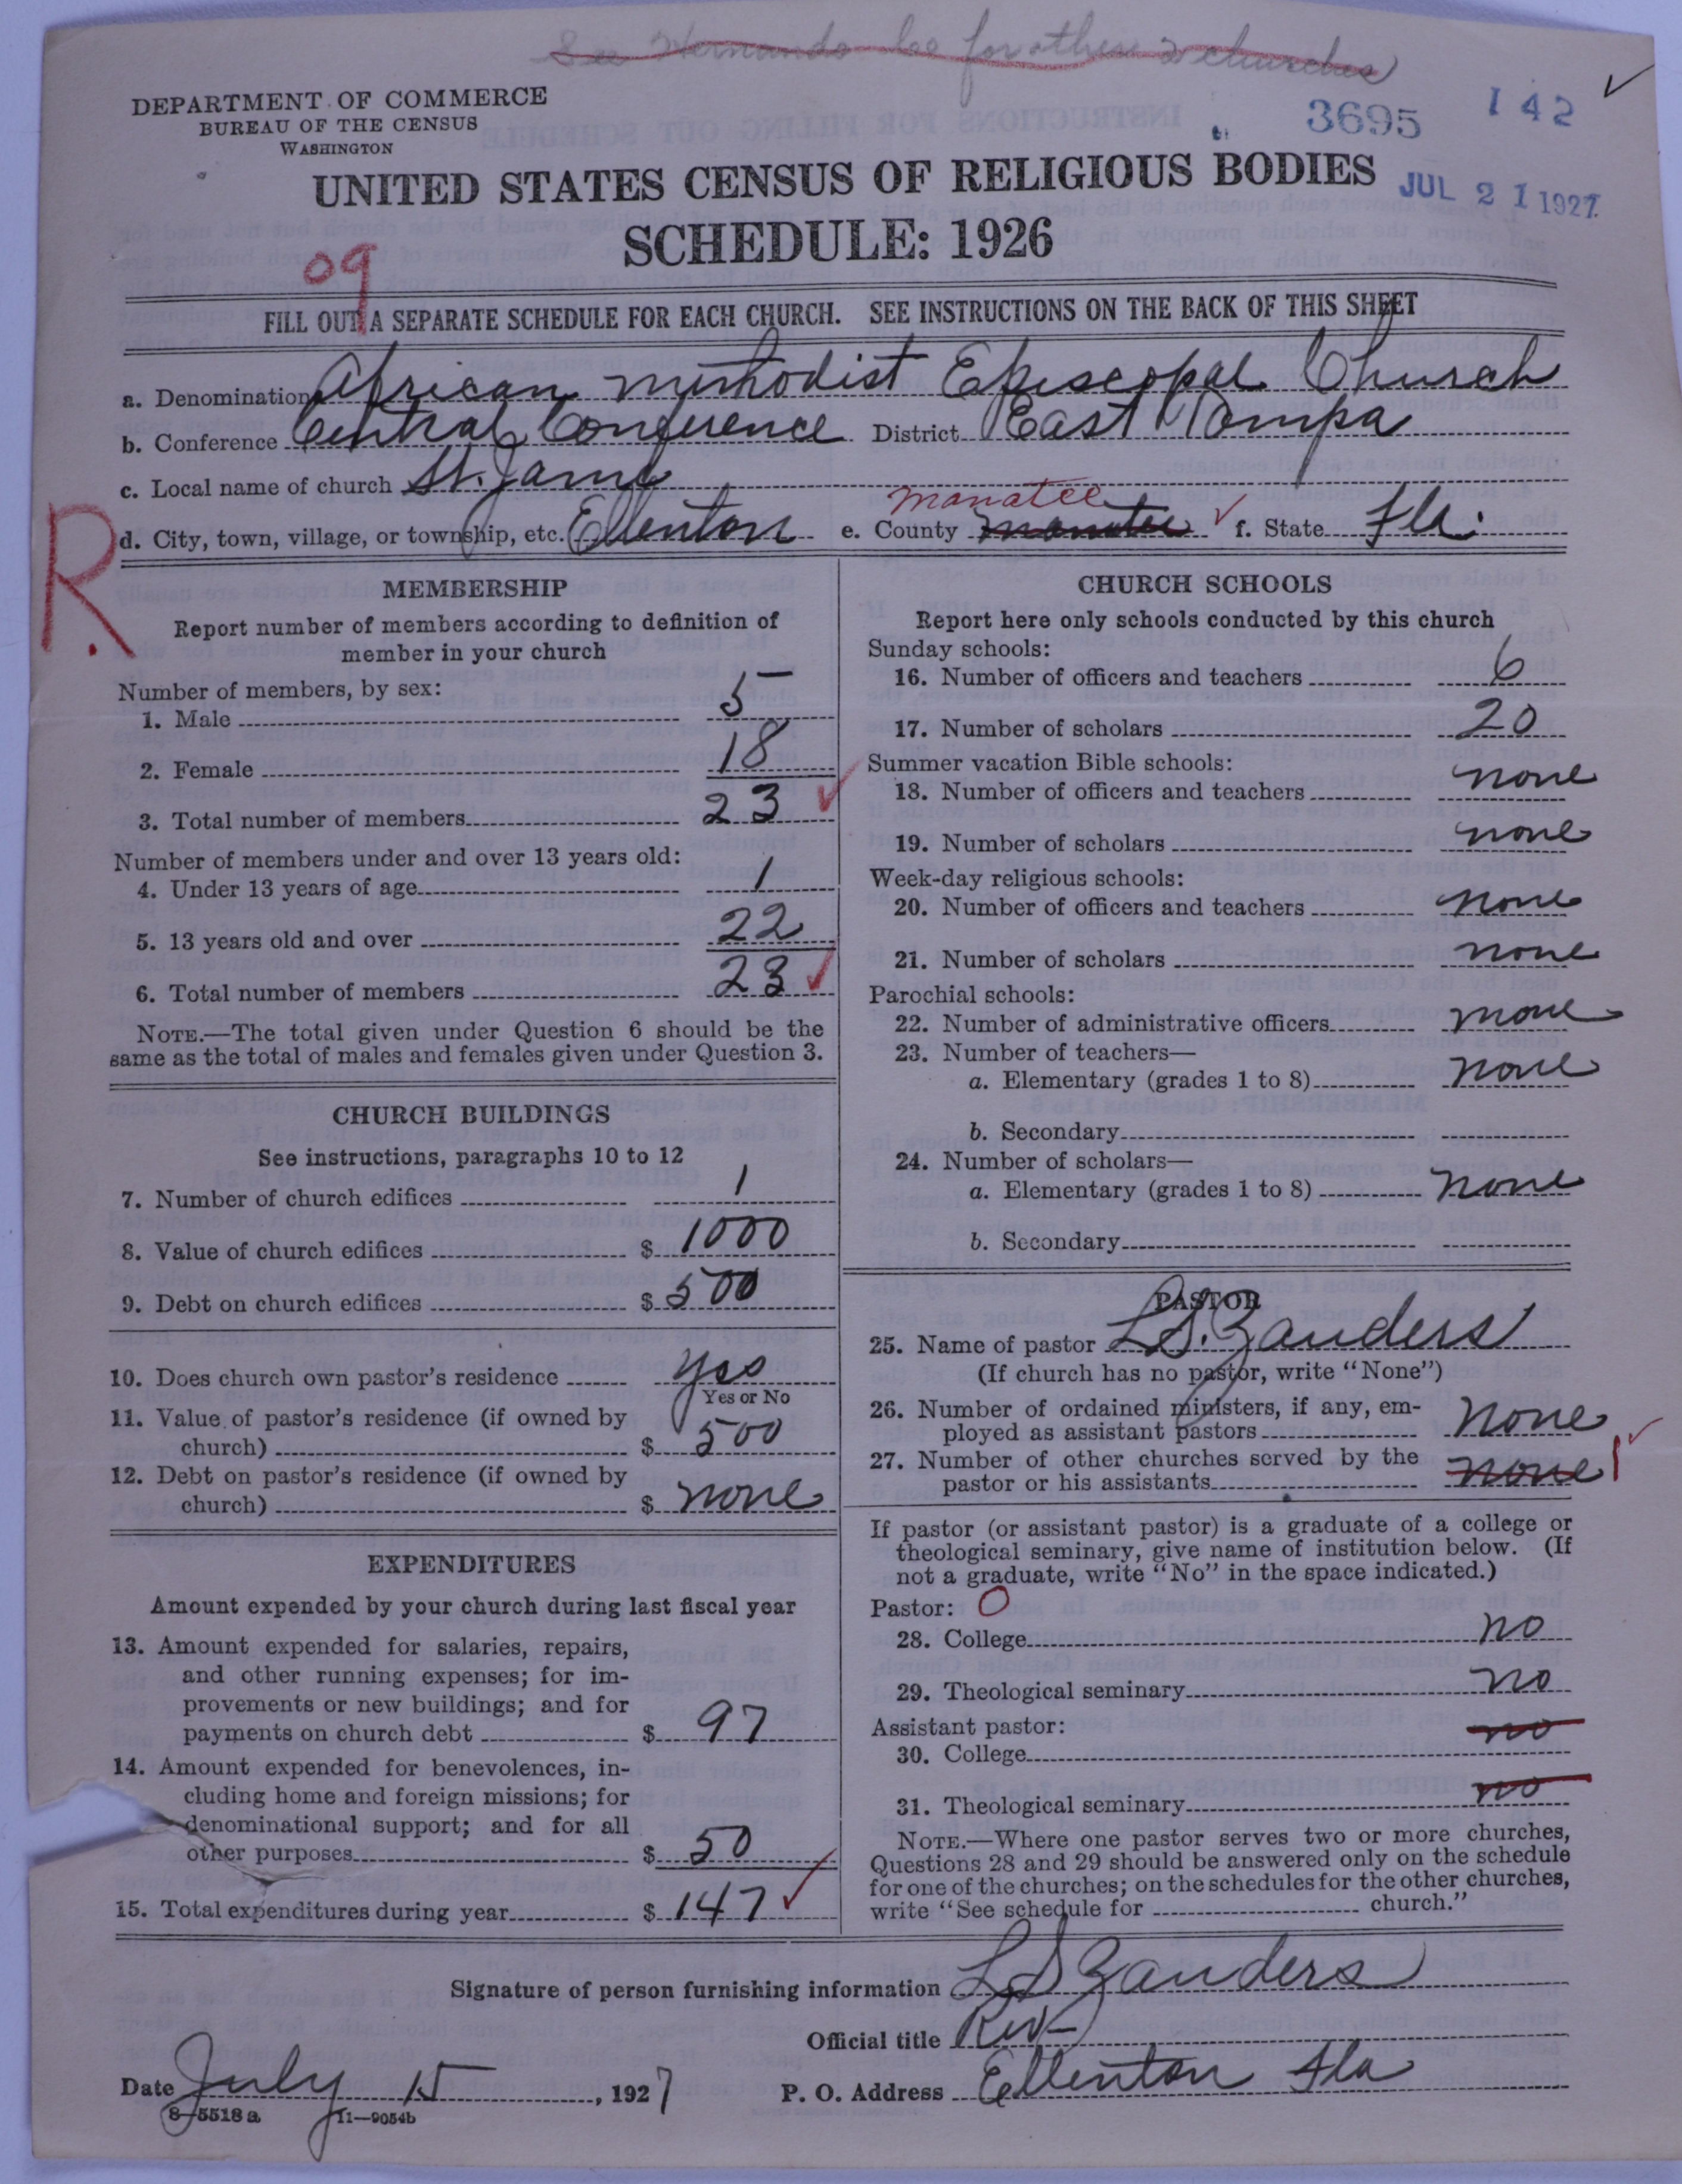 See Hernando Co for other 2 churches
DEPARTMENT OF COMMERCE
BUREAU OF THE CENSUS
WASHINGTON
3695 142
UNITED STATES CENSUS OF RELIGIOUS BODIES
JUL 21 1927
SCHEDULE: 1926
09
FILL OUT A SEPARATE SCHEDULE FOR EACH CHURCH. SEE INSTRUCTIONS ON THE BACK OF THIS SHEET
a. Denomination African Methodist Episcopal Church
b. Conference Central Conference District East Tampa
c. Local name of church St. James
manatee
d. City, town, village, or township, etc. Ellenton e. County manatee f. State Fla.
R.
MEMBERSHIP
Report number of members according to definition of
member in your church
Number of members, by sex:
1. Male 5
2. Female 18
3. Total number of members 23
Number of members under and over 13 years old:
4. Under 13 years of age 1
5. 13 years old and over 22
6. Total number of members 23
NOTE.—The total given under Question 6 should be the
same as the total of males and females given under Question 3.
CHURCH BUILDINGS
See instructions, paragraphs 10 to 12
7. Number of church edifices 1
8. Value of church edifices $ 1000
9. Debt on church edifices $ 500
10. Does church own pastor's residence yes
Yes or No
11. Value of pastor's residence (if owned by
church) $ 500
12. Debt on pastor's residence (if owned by
church) $ none
EXPENDITURES
Amount expended by your church during last fiscal year
13. Amount expended for salaries, repairs,
and other running expenses; for im-
provements or new buildings; and for
payments on church debt $ 97
14. Amount expended for benevolences, in-
cluding home and foreign missions; for
denominational support; and for all
other purposes $ 50
15. Total expenditures during year $ 147
CHURCH SCHOOLS
Report here only schools conducted by this church
Sunday schools:
16. Number of officers and teachers 6
17. Number of scholars 20
Summer vacation Bible schools:
18. Number of officers and teachers none
19. Number of scholars none
Week-day religious schools:
20. Number of officers and teachers none
21. Number of scholars none
Parochial schools:
22. Number of administrative officers none
23. Number of teachers—
a. Elementary (grades 1 to 8) none
b. Secondary
24. Number of scholars—
a. Elementary (grades 1 to 8) none
b. Secondary
PASTOR
25. Name of pastor L S. Zanders
(If church has no pastor, write "None")
26. Number of ordained ministers, if any, em-
ployed as assistant pastors none
27. Number of other churches served by the
pastor or his assistants none 1
If pastor (or assistant pastor) is a graduate of a college or
theological seminary, give name of institution below. (If
not a graduate, write "No" in the space indicated.)
Pastor: 0
28. College no
29. Theological seminary no
Assistant pastor:
30. College no
31. Theological seminary no
NOTE.—Where one pastor serves two or more churches,
Questions 28 and 29 should be answered only on the schedule
for one of the churches; on the schedules for the other churches,
write "See schedule for church."
Signature of person furnishing information L S Zanders
Official title Rev
Date July 15, 1927 P. O. Address Ellenton Fla
8—5518 a 11—9054b